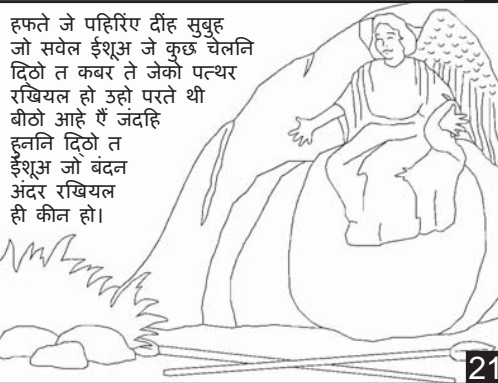 हफते जे पहिरिंए दींह सुबुह
जो सवेल ईशूअ जे कुछ चेलनि
दि्ठो त कबर ते जेको पत्थर
रखियल हो उहो परते थी
बीठो आहे ऐं जंदहि
हुननि दि्ठो त
ईशूअ जो बंदन
अंदर रखियल
ही कीन हो।
21